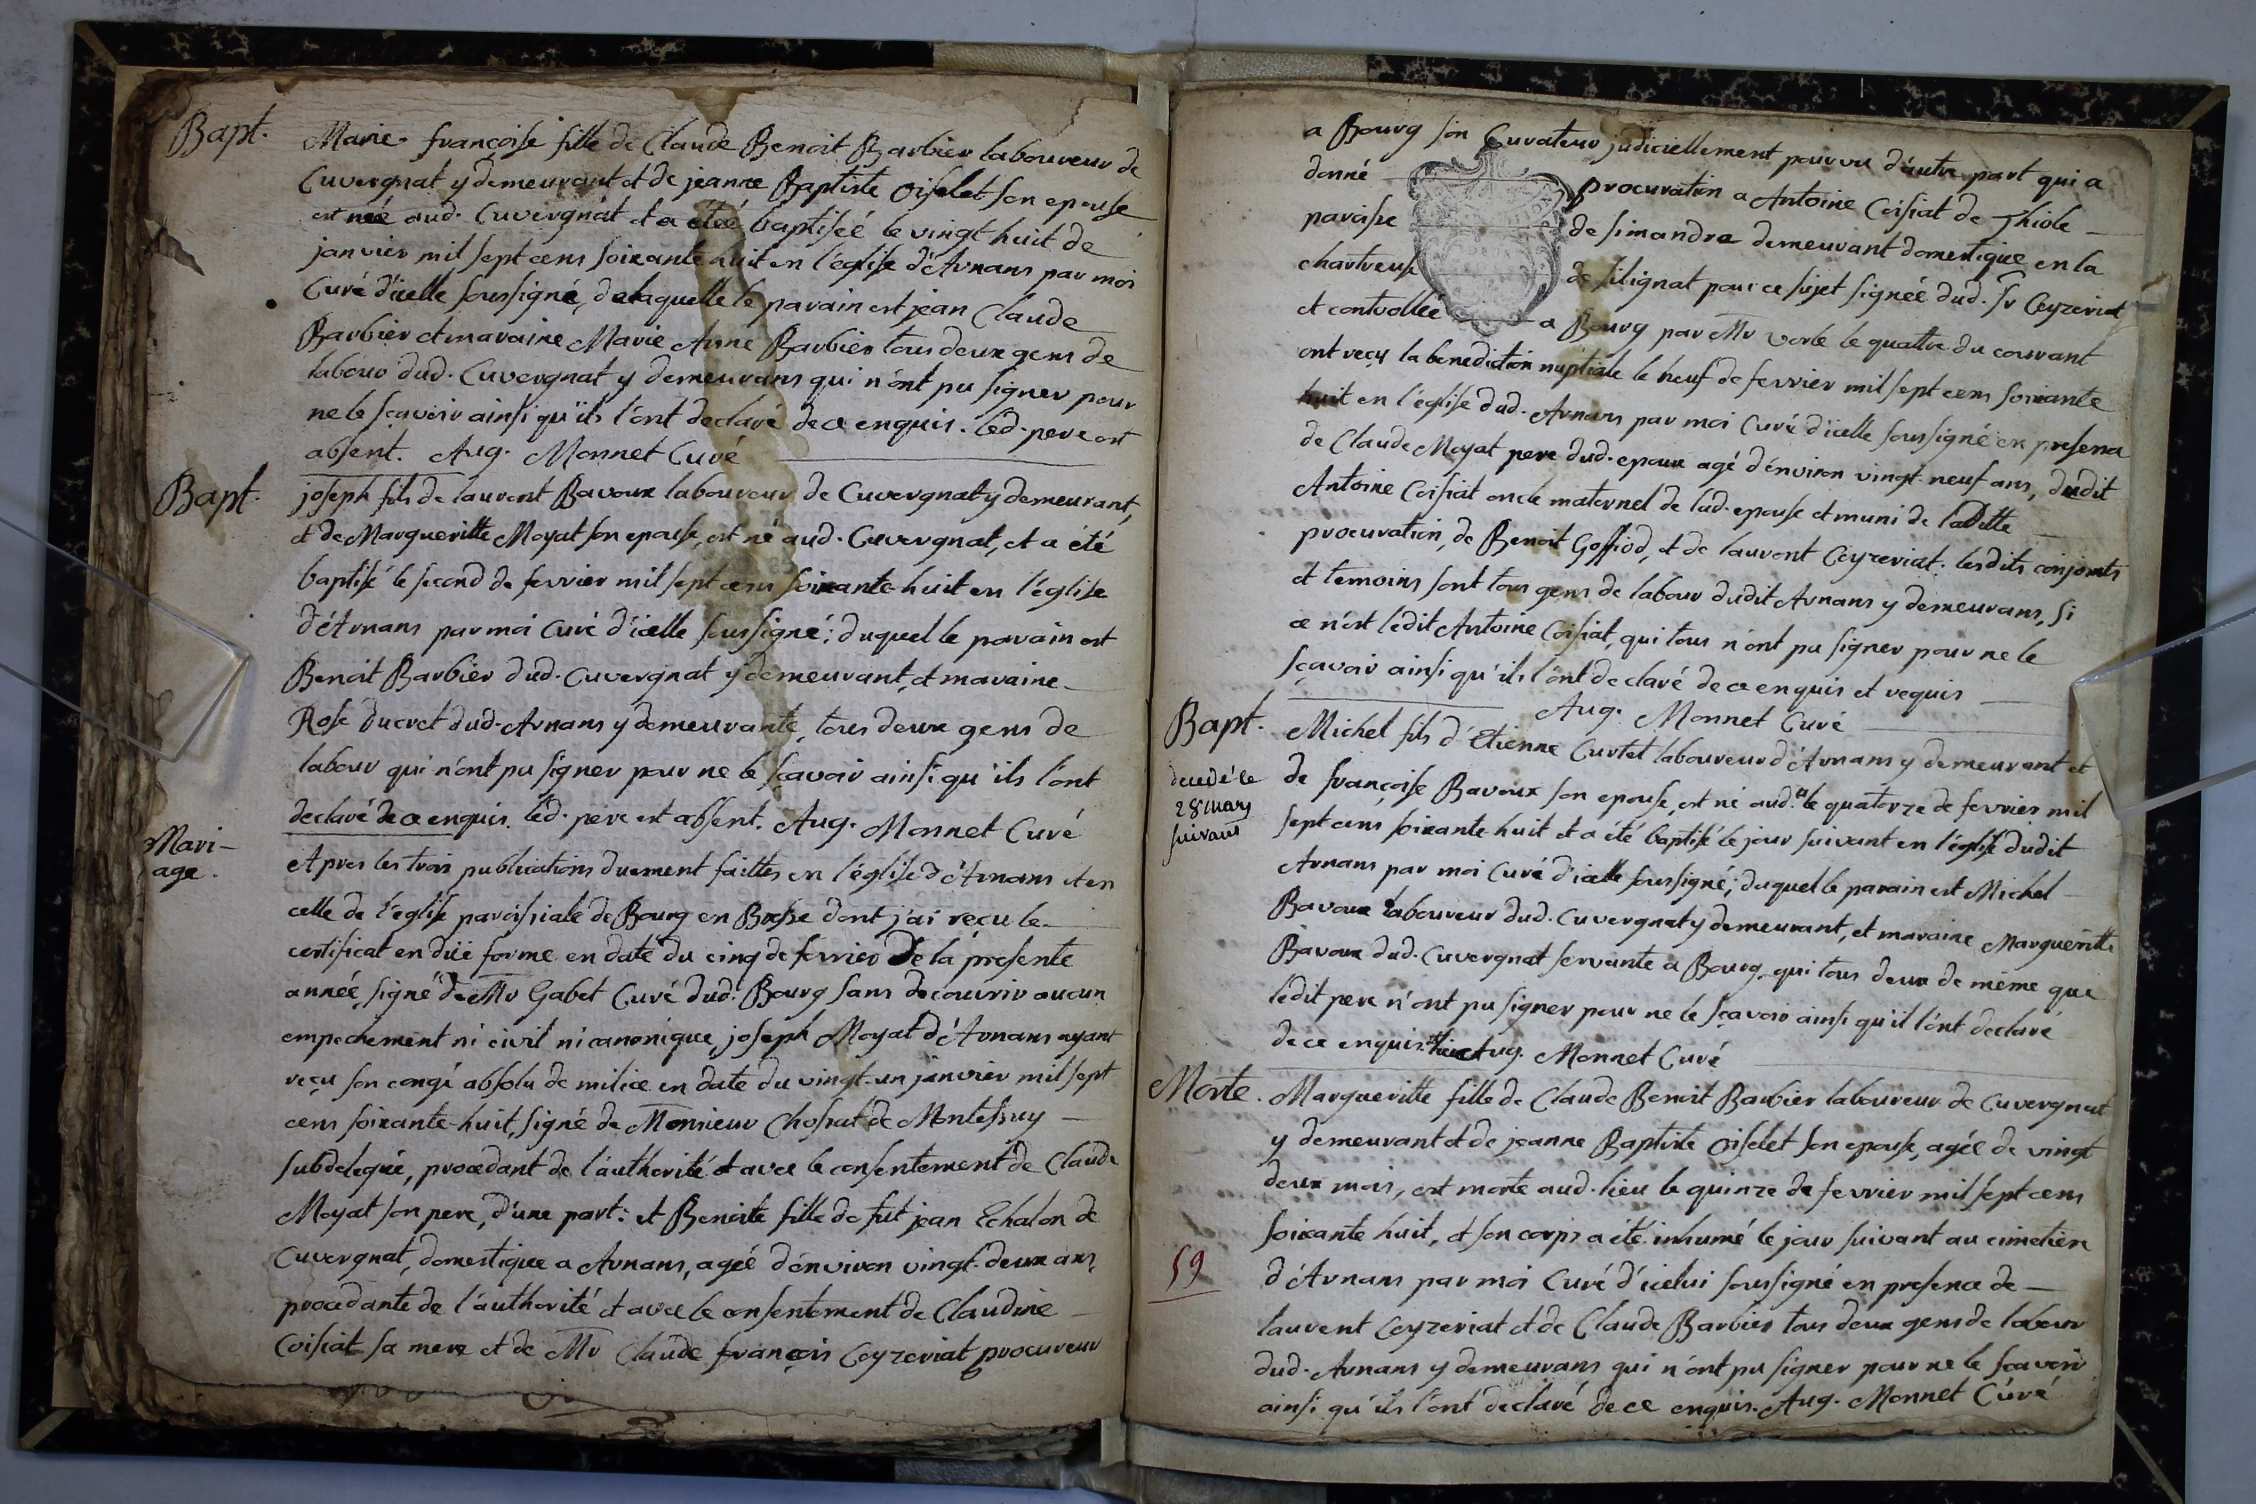 Bapt.
Marie françoise fille de Claude Benoit Barbier laboureur de
Cuvergnat y demeurant et de jeanne Baptiste Oiselet son epouse
est née aud. Cuvergnat et a étéé baptiséé le vingt huit de
janvier mil sept cens soixante huit en l'église d'Arnans par moi
Curé d'icelle soussigné, de laquelle le parain est jean Claude
Barbier et maraine Marie Anne Barbier tous deux gens de
labour dud. Cuvergnat y demeurans qui n'ont pu signer pour
ne le sçavoir ainsi qu'ils l'ont declaré de ce enquis. led. pere est
absent. Aug. Monnet Curé
Bapt.
joseph fils de laurent Bavoux laboureur de Cuvergnat y demeurant,
et de Margueritte Moyat son epouse, est né aud. Cuvergnat, et a été
baptisé le second de fevrier mil sept cens soixante-huit en l'église
d'Arnans par moi Curé d'icelle soussigné; duquel le parain est
Benoit Barbier dud. Cuvergnat y demeurant, et maraine
Rose Ducret dud. Arnans y demeurante, tous deux gens de
labour qui n'ont pu signer pour ne le sçavoir ainsi qu'ils l'ont
declaré de ce enquis. led. pere est absent. Aug. Monnet Curé
Mari-
age.
Apres les trois publications duement faittes en l'église d'Arnans et en
celle de l'église paroissiale de Bourg en Bresse dont j'ai reçu le
certificat en düe forme en date du cinq de fevrier de la presente
année, signé de Mr Gabet Curé dud. Bourg sans decouvrir aucun
empechement ni civil ni canonique, joseph Moyat d'Arnans ayant
reçu son congé absolu de milice en date du vingt-un janvier mil sept
cens soixante-huit, signé de Monsieur Chossat de Montessuy
subdelegué, procedant de l'authorité et avec le consentement de Claude
Moyat son pere, d'une part: et Benoite fille de fut jean Echalon de
Cuvergnat, domestique a Arnans, agéé d'environ vingt-deux ans,
procedante de l'authorité et avec le consentement de Claudine
Coisiat sa mere et de Mr Claude françois Ceyzeriat procureur
a Bourg son Curateur judiciellement pourvu d'autre part qui a
donné procuration a Antoine Coisiat de Thiole
paroisse de simandre demeurant domestique en la
chartreuse de silignat pour ce sujet signéé dud. Sr Ceyzeriat
et controlléé a Bourg par Mr Verle le quattre du courant
ont reçu la benediction nuptiale le neuf de fevrier mil sept cens soixante
huit en l'église dud. Arnans par moi Curé d'icelle soussigné en presence
de Claude Moyat pere dud. epoux agé d'environ vingt-neuf ans, dudit
Antoine Coisiat oncle maternel de lad. epouse et muni de laditte
procuration, de Benoit Goffiod, et de laurent Ceyzeriat. lesdits conjoints
et temoins sont tous gens de labour dudit Arnans y demeurans, si
ce n'est ledit Antoine Coisiat, qui tous n'ont pu signer pour ne le
sçavoir ainsi qu'ils l'ont declaré de ce enquis et requis
Aug. Monnet Curé
Bapt.
decedé le
28 mars
suivant
Michel fils d'Etienne Curtet laboureur d'Arnans y demeurant et
de françoise Bavoux son epouse, est né aud. le quatorze de fevrier mil
sept cens soixante-huit et a été baptisé le jour suivant en l'église dudit
Arnans par moi Curé d'icelle soussigné; duquel le parain est Michel
Bavoux laboureur dud. Cuvergnat y demeurant, et maraine Margueritte
Bavoux dud. Cuvergnat servante a Bourg, qui tous deux de même que
ledit pere n'ont pu signer pour ne le sçavoir ainsi qu'il l'ont declaré
de ce enquis. Aug. Monnet Curé
Morte.
Margueritte fille de Claude Benoit Barbier laboureur de Cuvergnat
y demeurant et de jeanne Baptiste Oiselet son epouse, agéé de vingt
deux mois, est morte aud. lieu le quinze de fevrier mil sept cens
soixante huit, et son corps a été inhumé le jour suivant au cimetiere
d'Arnans par moi Curé d'icelui soussigné en presence de
laurent Ceyzeriat et de Claude Barbier tous deux gens de labour
dud. Arnans y demeurans qui n'ont pu signer pour ne le sçavoir
ainsi qu'ils l'ont declaré de ce enquis. Aug. Monnet Curé
59